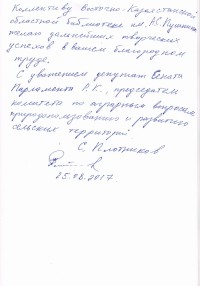 Коллективу Восточно-Казахстанской
областной библиотеке им. А.С. Пушкина
желаю дальнейших творческих
успехов в вашем благородном
труде.
С уважением депутат Сената
Парламента Р.К., председатель
комитета по аграрным вопросам,
природопользованию и развитию
сельских территорий
С. Плотников
25.08.2017